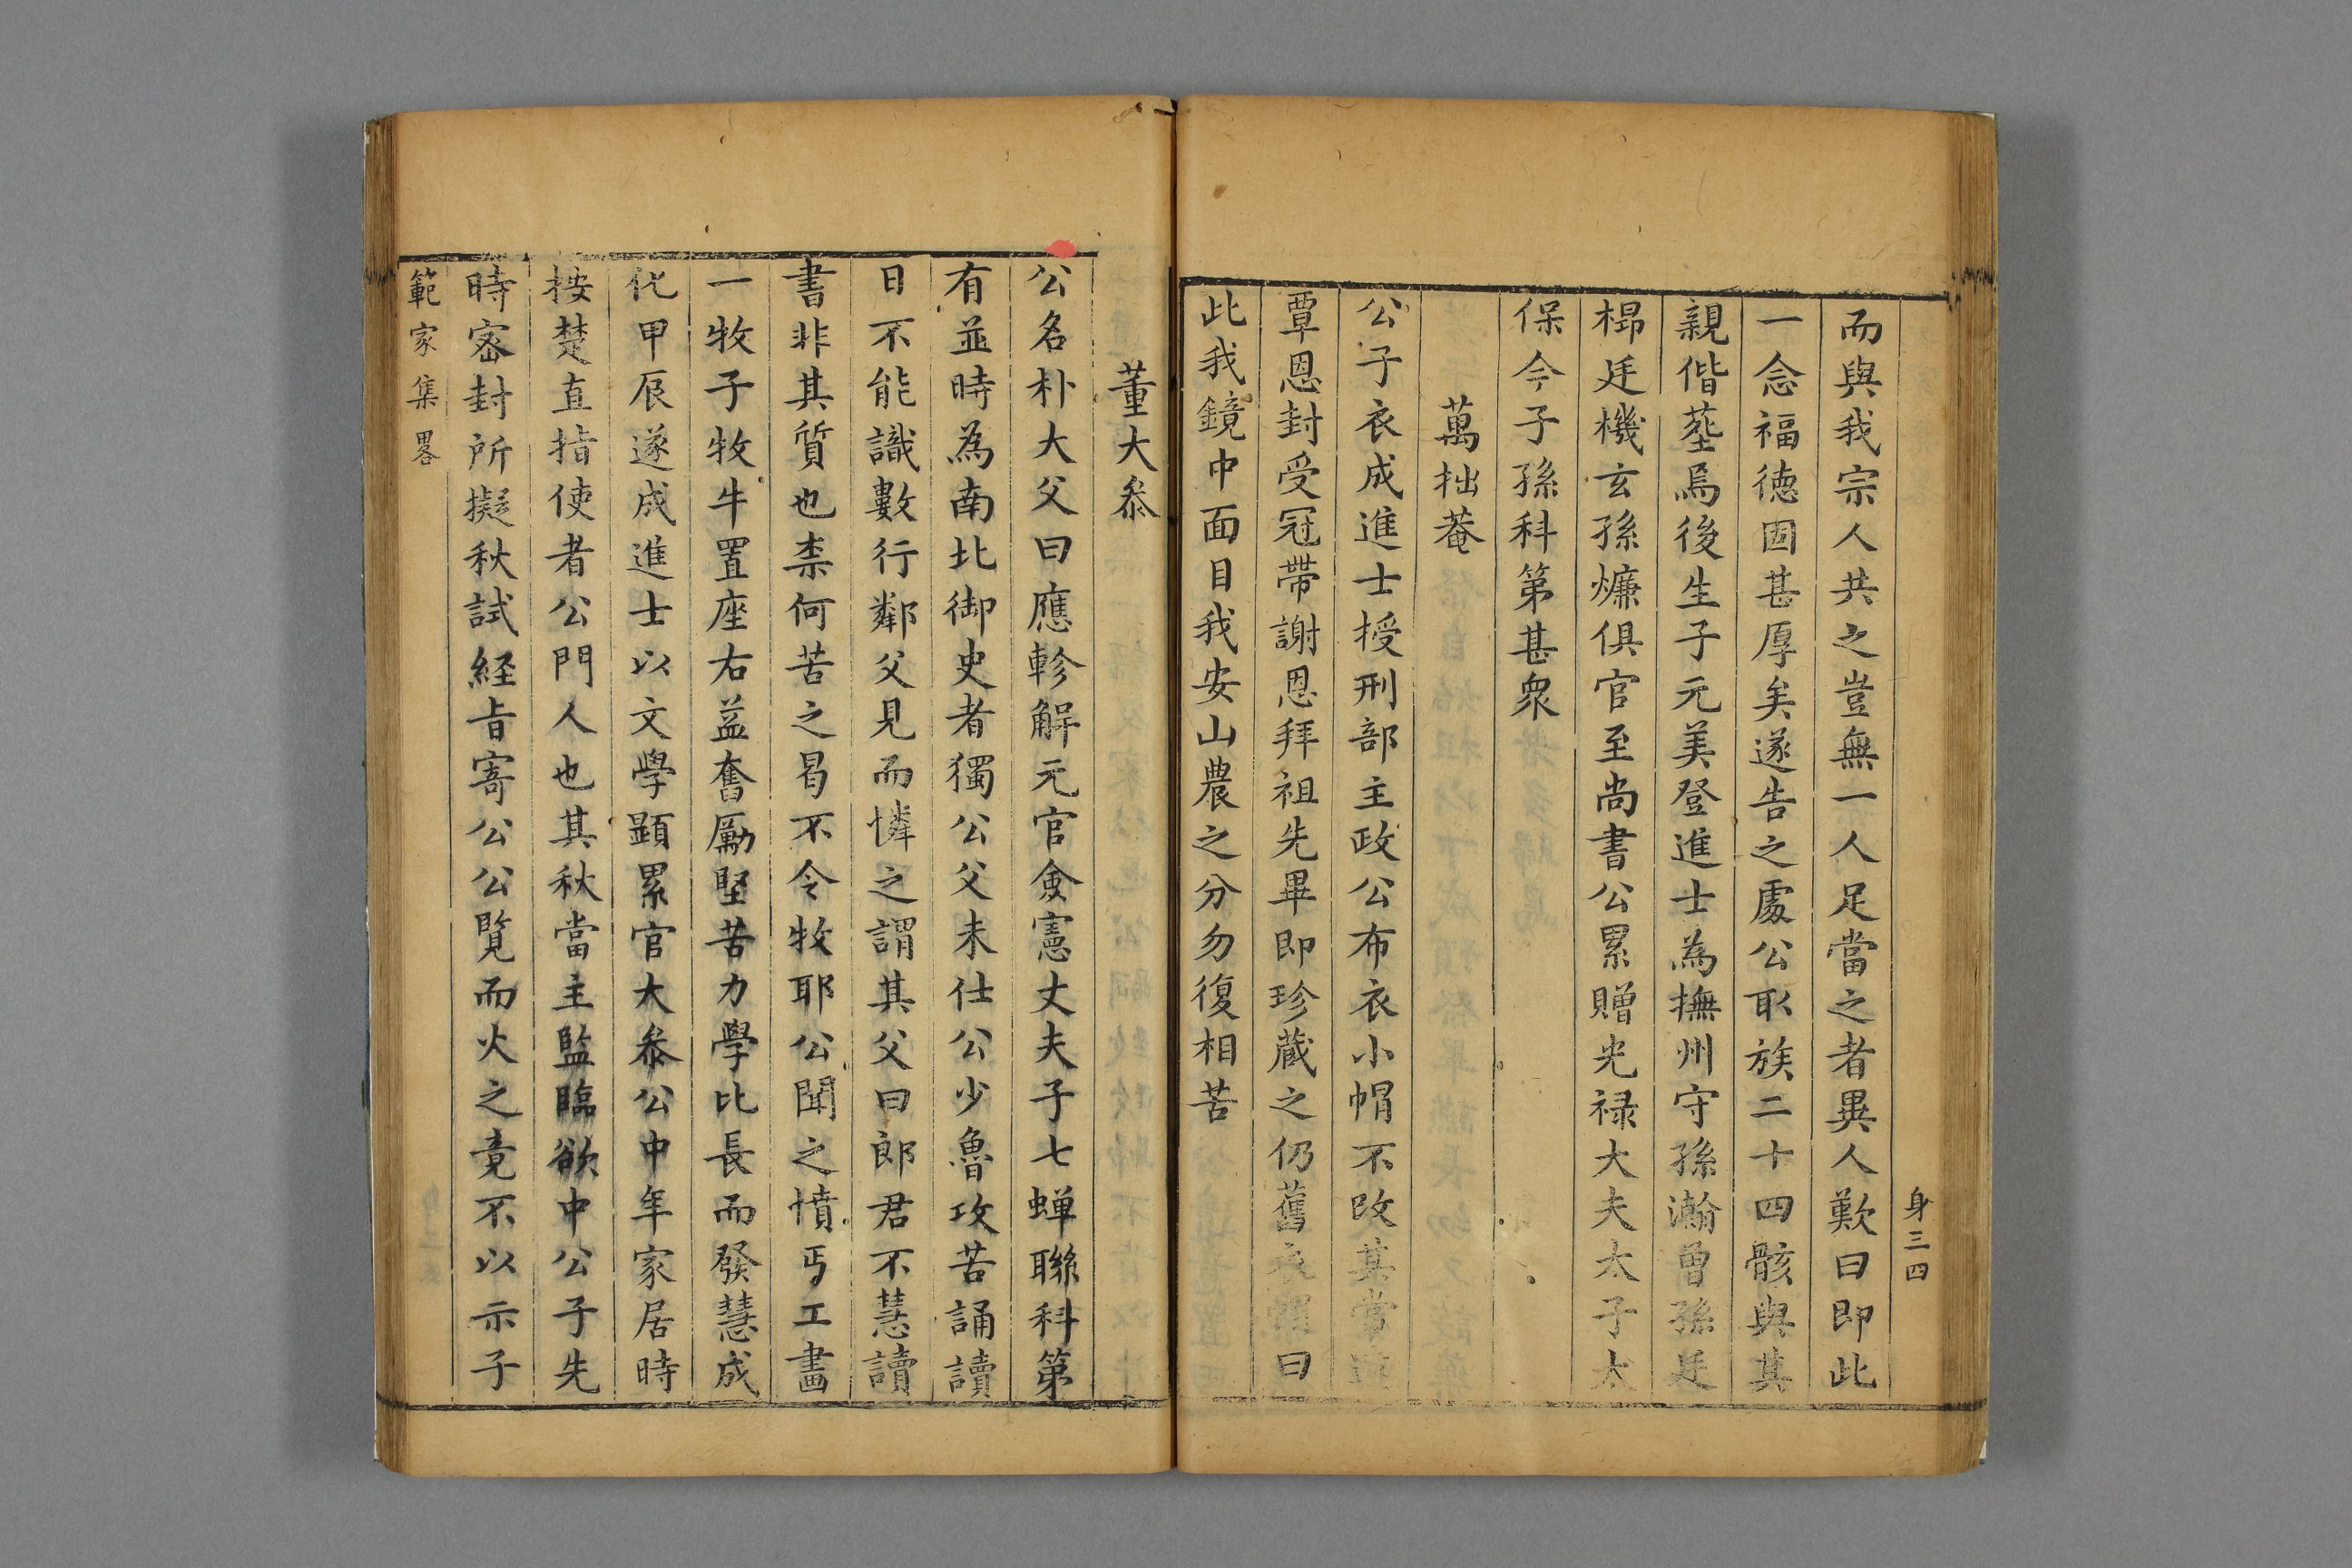 身三四
而與我宗人共之豈無一人足當之者異人歎曰即此
一念福德固甚厚矣遂告之處公取族二十四骸與其
親偕塟焉後生子元美登進士為撫州守孫瀚曾孫廷
㭿廷機玄孫㷻俱官至尚書公累贈光禄大夫太子太
保今子孫科第甚衆
萬拙菴
公子衣成進士授刑部主政公布衣小帽不改其常
覃恩封受冠帶謝恩拜祖先畢即珍蔵之仍舊衣帽曰
此我鏡中面目我安山農之分勿復相苦
董大叅
公名朴大父曰應軫解元官僉憲丈夫子七蟬聯科第
有並時為南北御史者獨公父未仕公少魯攻苦誦讀
日不能識數行鄰父見而憐之謂其父曰郎君不慧讀
書非其質也柰何苦之曷不令牧耶公聞之憤丐工畵
一牧子牧牛置座右益奮勵堅苦力學比長而發慧成
化甲辰遂成進士以文學顕累官大叅公中年家居時
按楚直指使者公門人也其秋當主監臨欲中公子先
時宻封所擬秋試経旨寄公公覧而火之竟不以示子
範家集畧